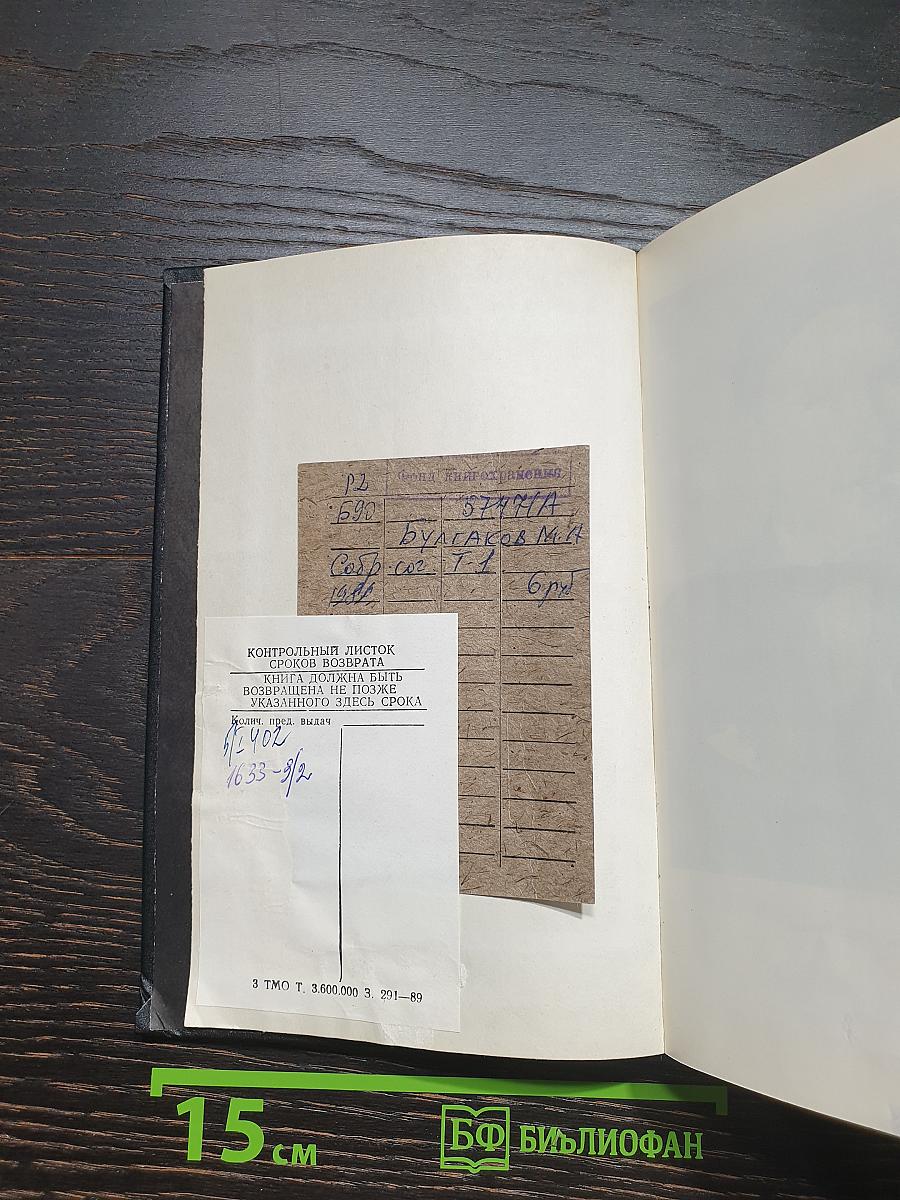 Р2 Фонд книгохранения
Б90 57471А
БУЛГАКОВ М.А
Собр. соч. Т-1
6 руб
КОНТРОЛЬНЫЙ ЛИСТОК
СРОКОВ ВОЗВРАТА
КНИГА ДОЛЖНА БЫТЬ
ВОЗВРАЩЕНА НЕ ПОЗЖЕ
УКАЗАННОГО ЗДЕСЬ СРОКА
Колич. пред. выдач
1633-9/2
3 ТМО Т. 3.600.000 З. 291—89
15 см
БФ БИБЛИОФАН